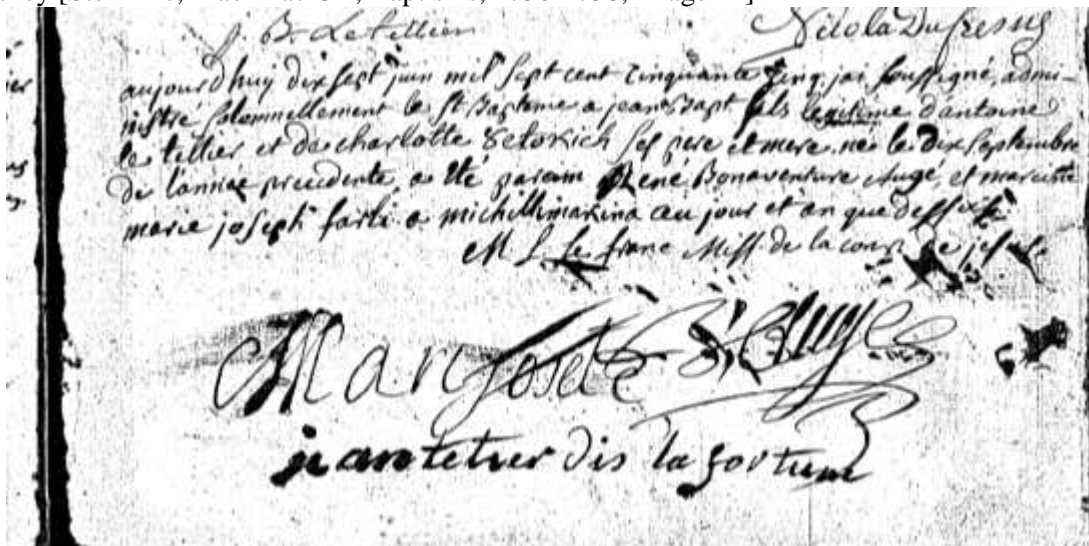 J. B. Letellier Nicola Dufresne
aujourd'huy dix sept juin mil sept cent cinquante cinq, jai soussigné, admi-
nistré solemnellement le st Bapteme a jean Bapt fils legitime d'antoine
le tellier et de charlotte 8eto8ich ses pere et mere. né le dix septembre
de l'année precedente, a été parain René Bonaventure Augé, et maraine
marie joseph farli a michillimakina ceu jour et an que dessus
M L le franc Miss. de la comp de jesus
Mari josete
jean letlier dis la fortune